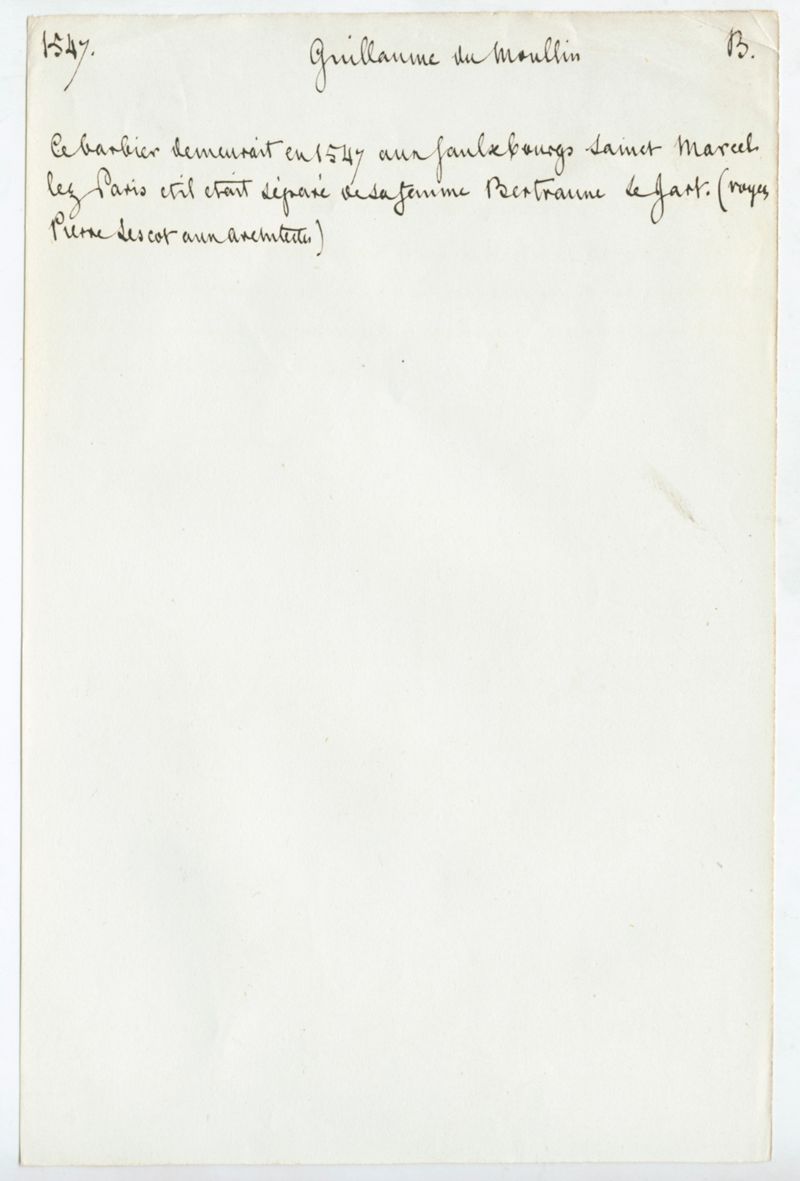 1547. Guillaume du Moullin B.
Ce barbier demeurait en 1547 aux faulxbourgs sainct Marcel
lez Paris et il était séparé de sa femme Bertranne Le Jart. (voyez
Pierre Lescot aux architectes)